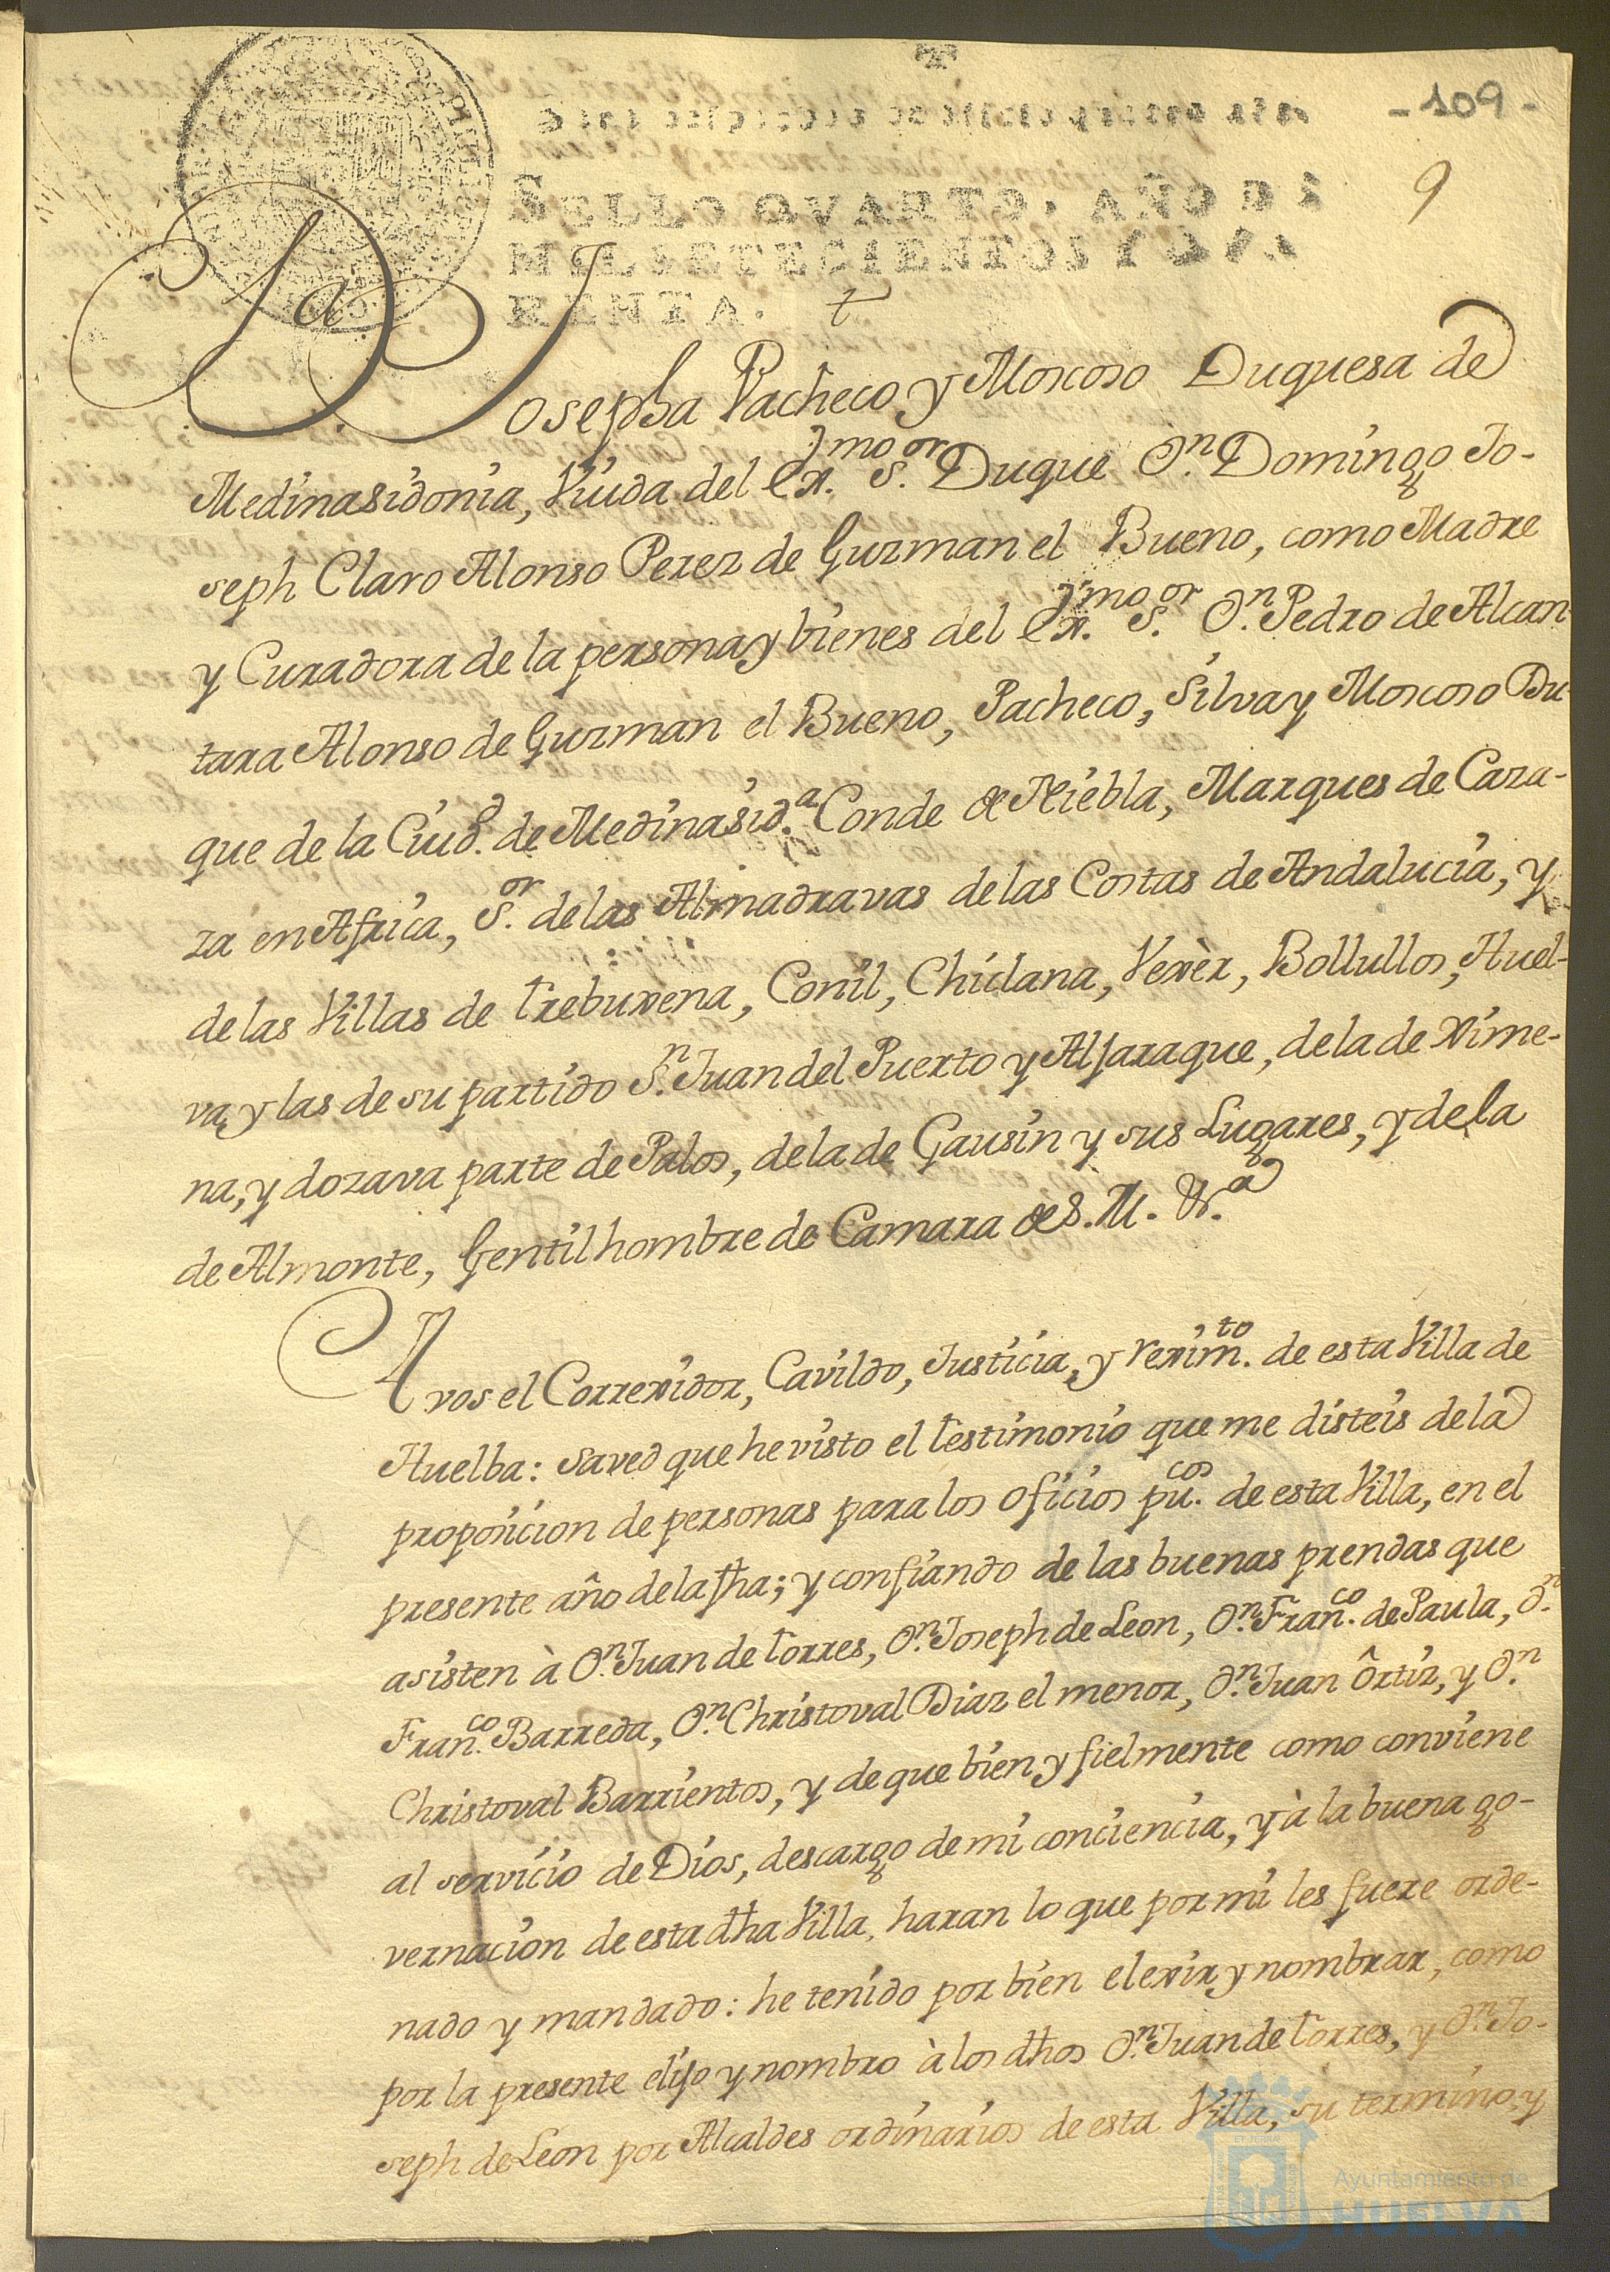 - 109 -
9
SELLO QVARTO, AÑO DE
MIL SETECIENTOS Y QVA
RENTA.
Da Josepha Pacheco y Moscoso Duquesa de
Medinasidonia, Viuda del Ex.mo S.or Duque D.n Domingo Jo-
seph Claro Alonso Perez de Guzman el Bueno, como Madre
y Curadora de la persona y bienes del Ex.mo S.or D.n Pedro de Alcan-
tara Alonso de Guzman el Bueno, Pacheco, Silva y Moscoso Du-
que de la Ciud. de Medinasid.a Conde de Niebla, Marques de Caza-
za en Africa, S.or de las Almadravas de las Costas de Andalucia, y
de las Villas de Trebuxena, Conil, Chiclana, Vexèr, Bollullos, Huel-
va, y las de su partido S.n Juan del Puerto y Aljaraque, de la de Xime-
na, y dozava parte de Palos, de la de Gausin y sus Lugares, y de la
de Almonte, Gentilhombre de Camara de S. M. &.a
A vos el Correxidor, Cavildo, Justicia, y reximto. de esta Villa de
Huelba: saved que he visto el testimonio que me disteis de la
proposicion de personas para los oficios pu.cos de esta Villa, en el
presente año de la fha; y confiando de las buenas prendas que
asisten à D.n Juan de Torres, D.n Joseph de Leon, D.n Fran.co de Paula, D.n
Fran.co Barreda, D.n Christoval Diaz el menor, D.n Juan Ôrtiz, y D.n
Christoval Barrientos, y de que bien y fielmente como conviene
al servicio de Dios, descargo de mi conciencia, y à la buena go-
vernacion de esta dha Villa, haran lo que por mi les fuere orde-
nado y mandado: he tenido por bien elexir y nombrar, como
por la presente elijo y nombro à los dhos D.n Juan de Torres, y D.n Jo-
seph de Leon por Alcaldes ordinarios de esta Villa, su termino, y
Ayuntamiento de
HUELVA